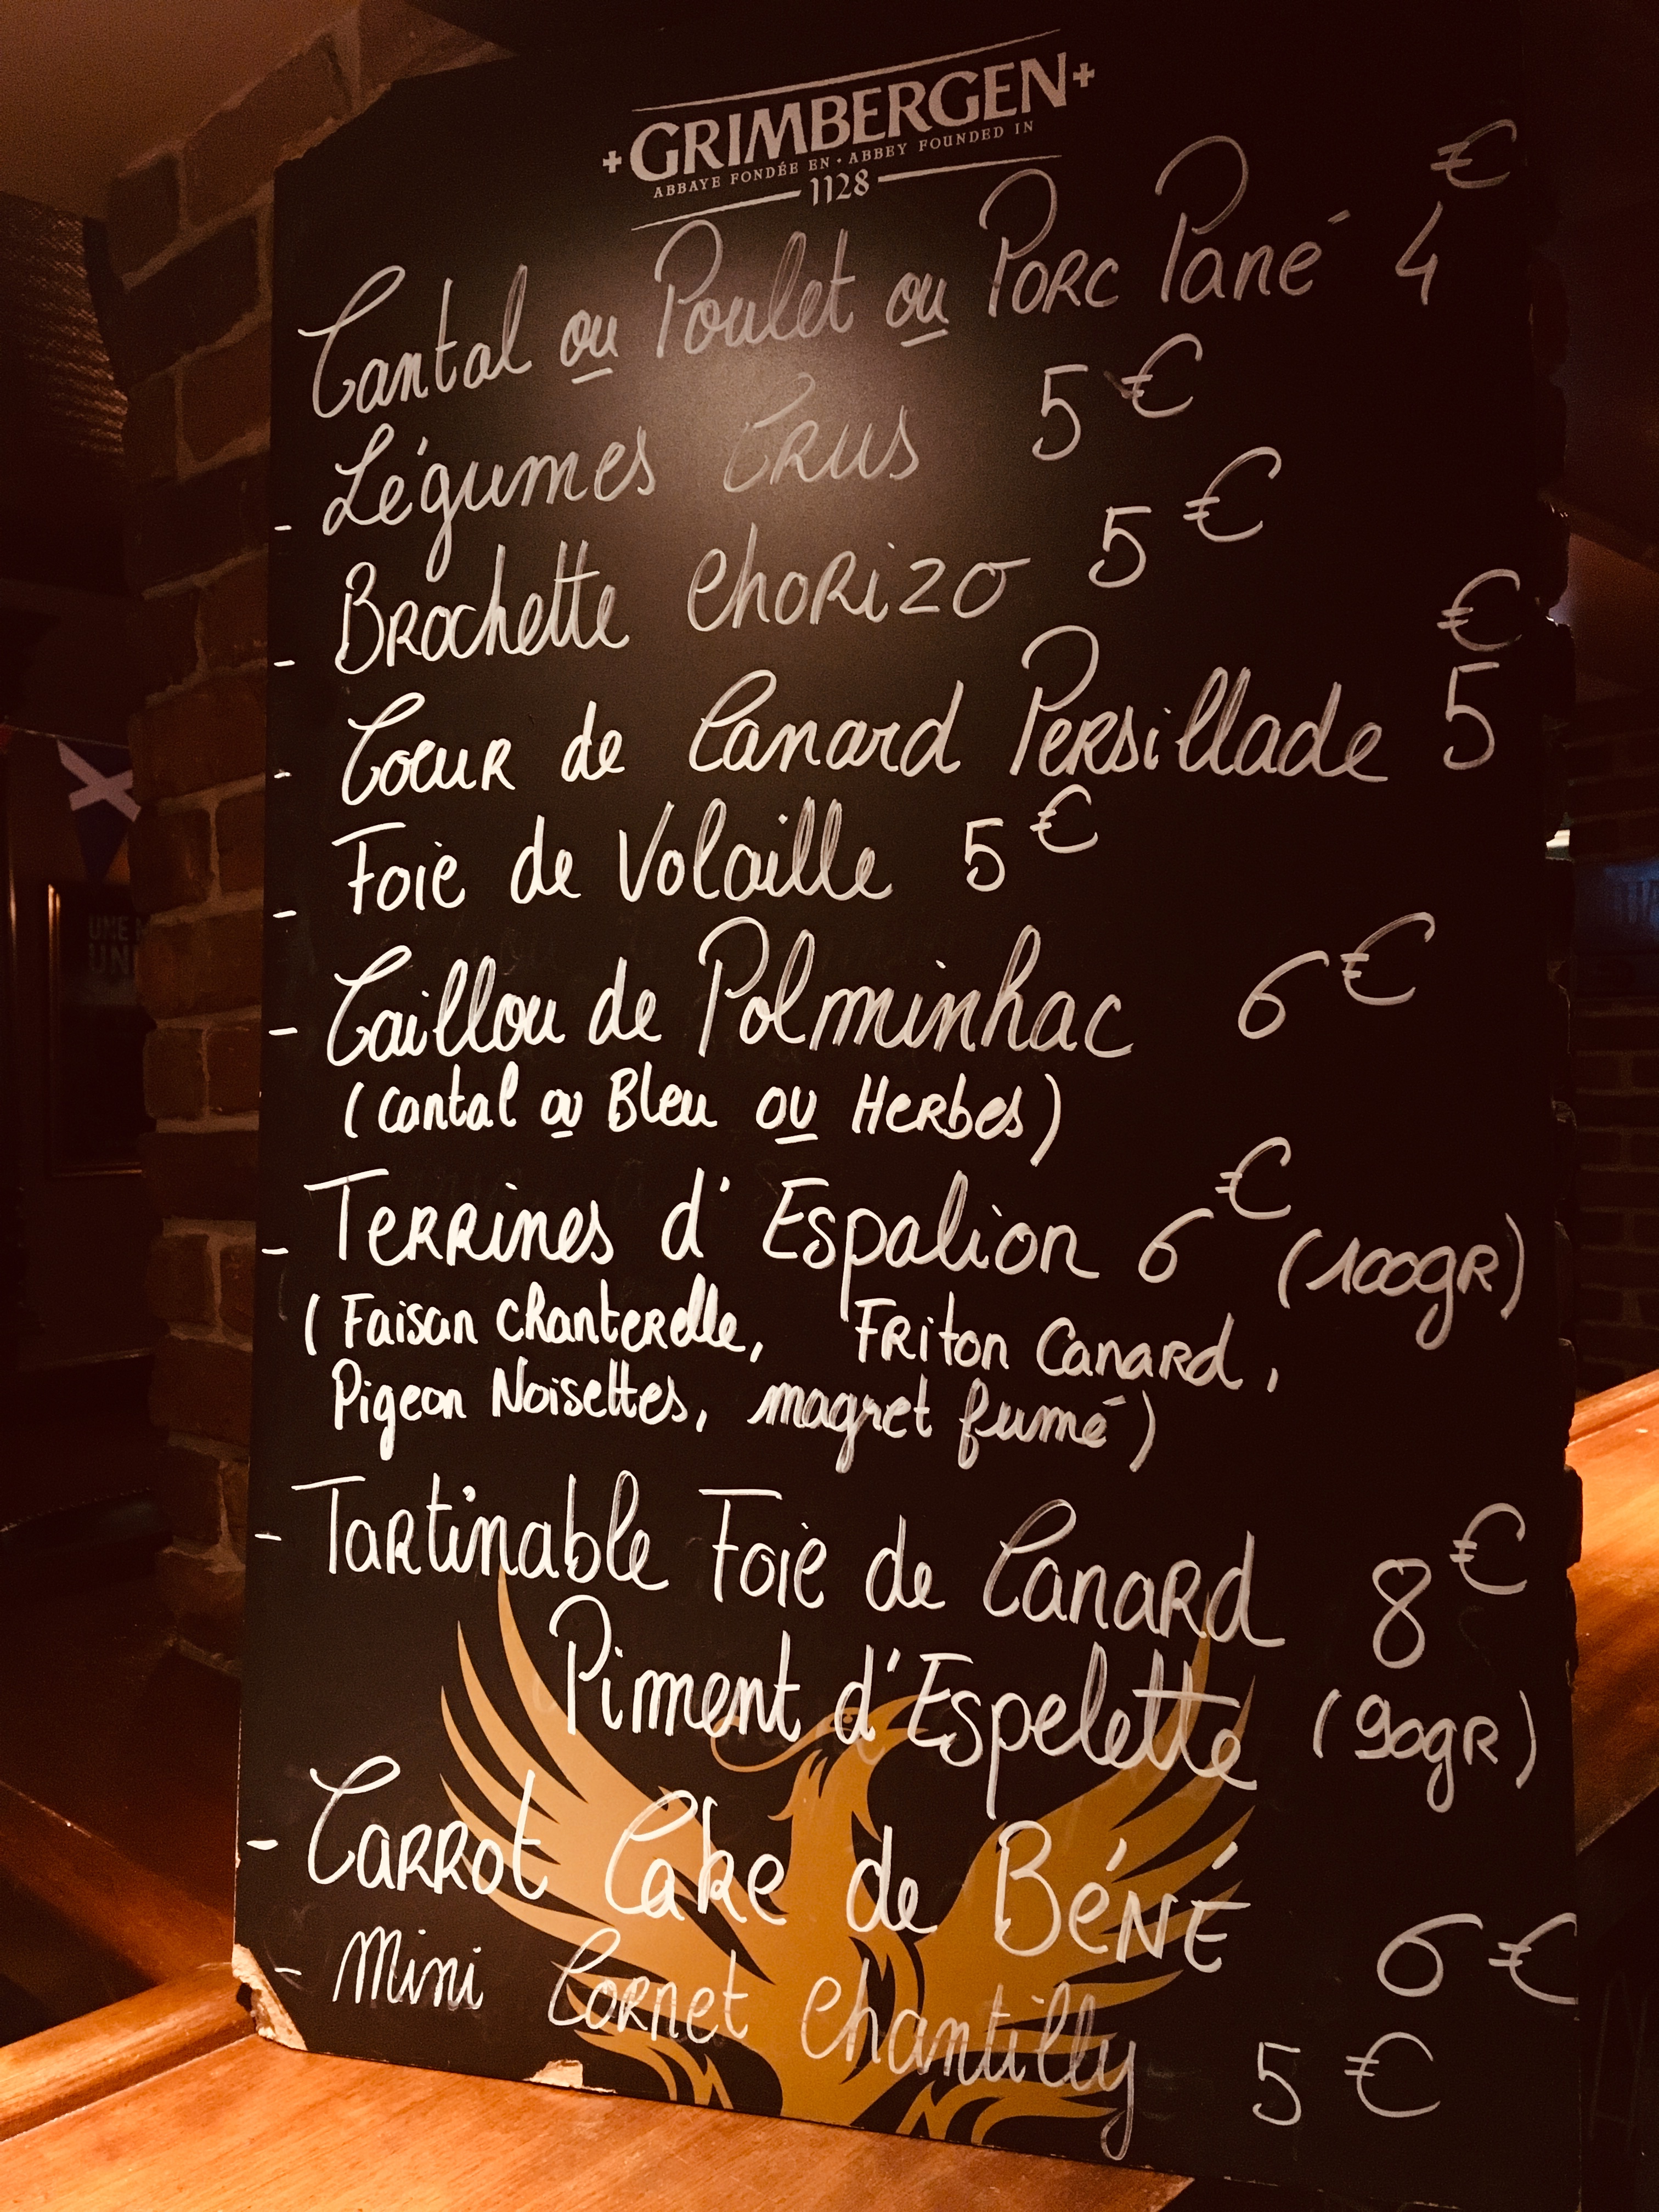 +GRIMBERGEN+
ABBAYE FONDÉE EN · ABBEY FOUNDED IN
1128
Cantal ou Poulet ou Porc Pané 4€
- Légumes Crus 5€
- Brochette Chorizo 5€
- Coeur de Canard Persillade 5€
- Foie de Volaille 5€
- Caillou de Polminhac 6€
(Cantal ou Bleu ou Herbes)
- Terrines d'Espalion 6€ (100gr)
(Faisan Chanterelle, Friton Canard,
Pigeon Noisettes, magret fumé)
- Tartinable Foie de Canard 8€
Piment d'Espelette (90gr)
- Carrot Cake de BéNÉ 6€
- Mini Cornet Chantilly 5€